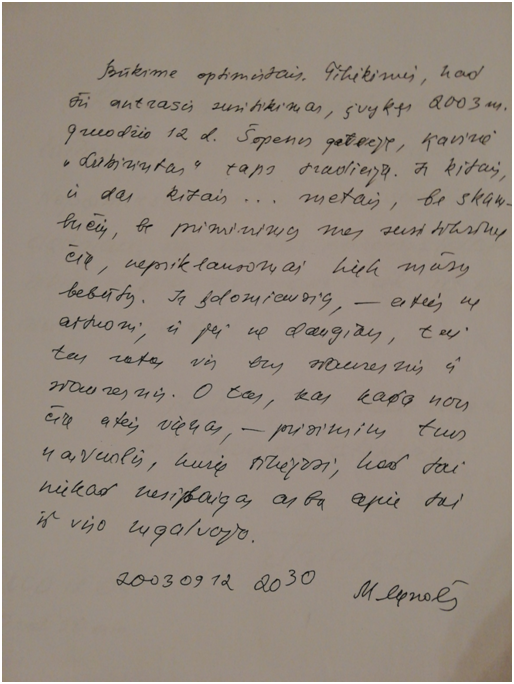 Būkime optimistais. Tikėkimės, kad
šis antrasis susitikimas, įvykęs 2003 m.
gruodžio 12 d. Šopeno gatvėje, kavinė
"Labirintas" taps tradicija. Ir kitais,
ir dar kitais ... metais, be skam-
bučių, be priminimų mes susitiksime
čia, nepriklausomai kiek mūsų
bebūtų. Ir įdomiausia, – ateis ne
aštuoni, ir jei ne daugiau, tai
tas ratas vis bus siauresnis ir
siauresnis. O tas, kas kada nors
čia ateis vienas, – prisimins tuos
naivuolis, kurie tikėjosi, kad tai
niekad nesibaigs arba apie tai
iš viso negalvojo.
20030912 20 30 M